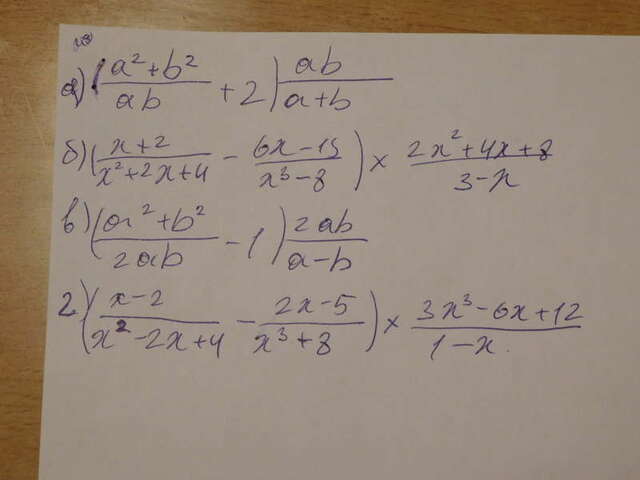 а) (a²+b²/ab + 2) ab/a+b
б) (x+2/x²+2x+4 - 6x-15/x³-8) × 2x²+4x+8/3-x
в) (a²+b²/2ab - 1) 2ab/a-b
г) (x-2/x²-2x+4 - 2x-5/x³+8) × 3x³-6x+12/1-x.